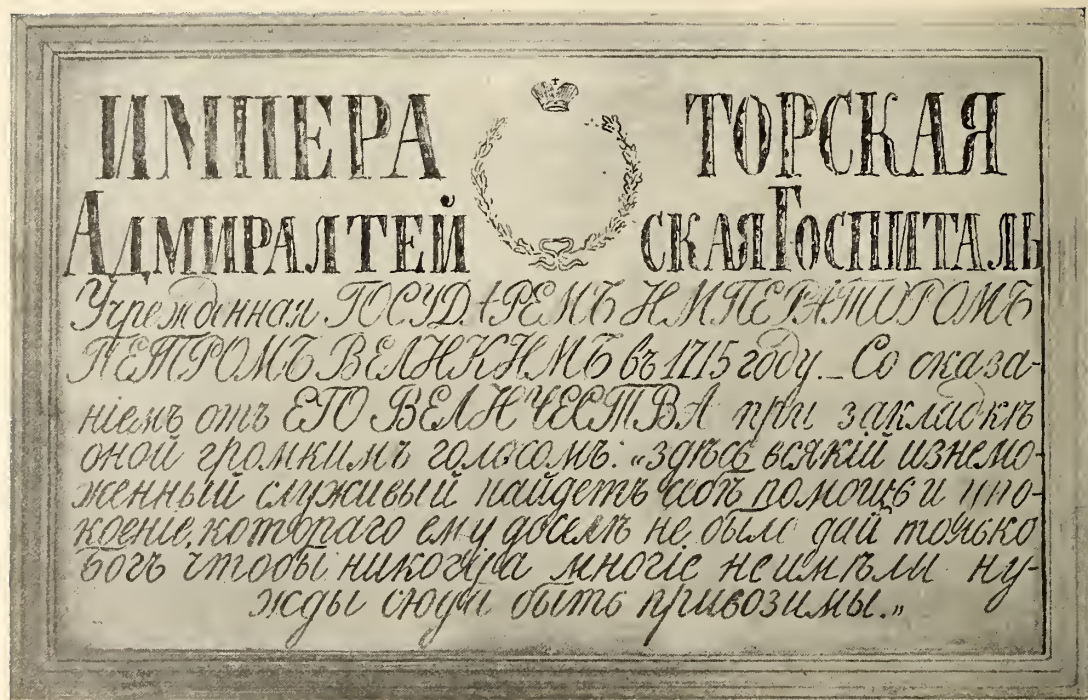 ИМПЕРАТОРСКАЯ
АДМИРАЛТЕЙСКАЯ ГОСПИТАЛЬ
Учрежденная ГОСУДАРЕМЪ ИМПЕРАТОРОМЪ
ПЕТРОМЪ ВЕЛИКИМЪ въ 1715 году. _ Со сказа-
ніемъ отъ ЕГО ВЕЛИЧЕСТВА при закладкѣ
оной громкимъ голосомъ: „здѣсь всякій изнемо-
женный служивый найдетъ себѣ помощь и упо-
коеніе, котораго ему доселѣ не было дай только
Богъ чтобы никогда многіе не имѣли ну-
жды сюда быть привозимы.„